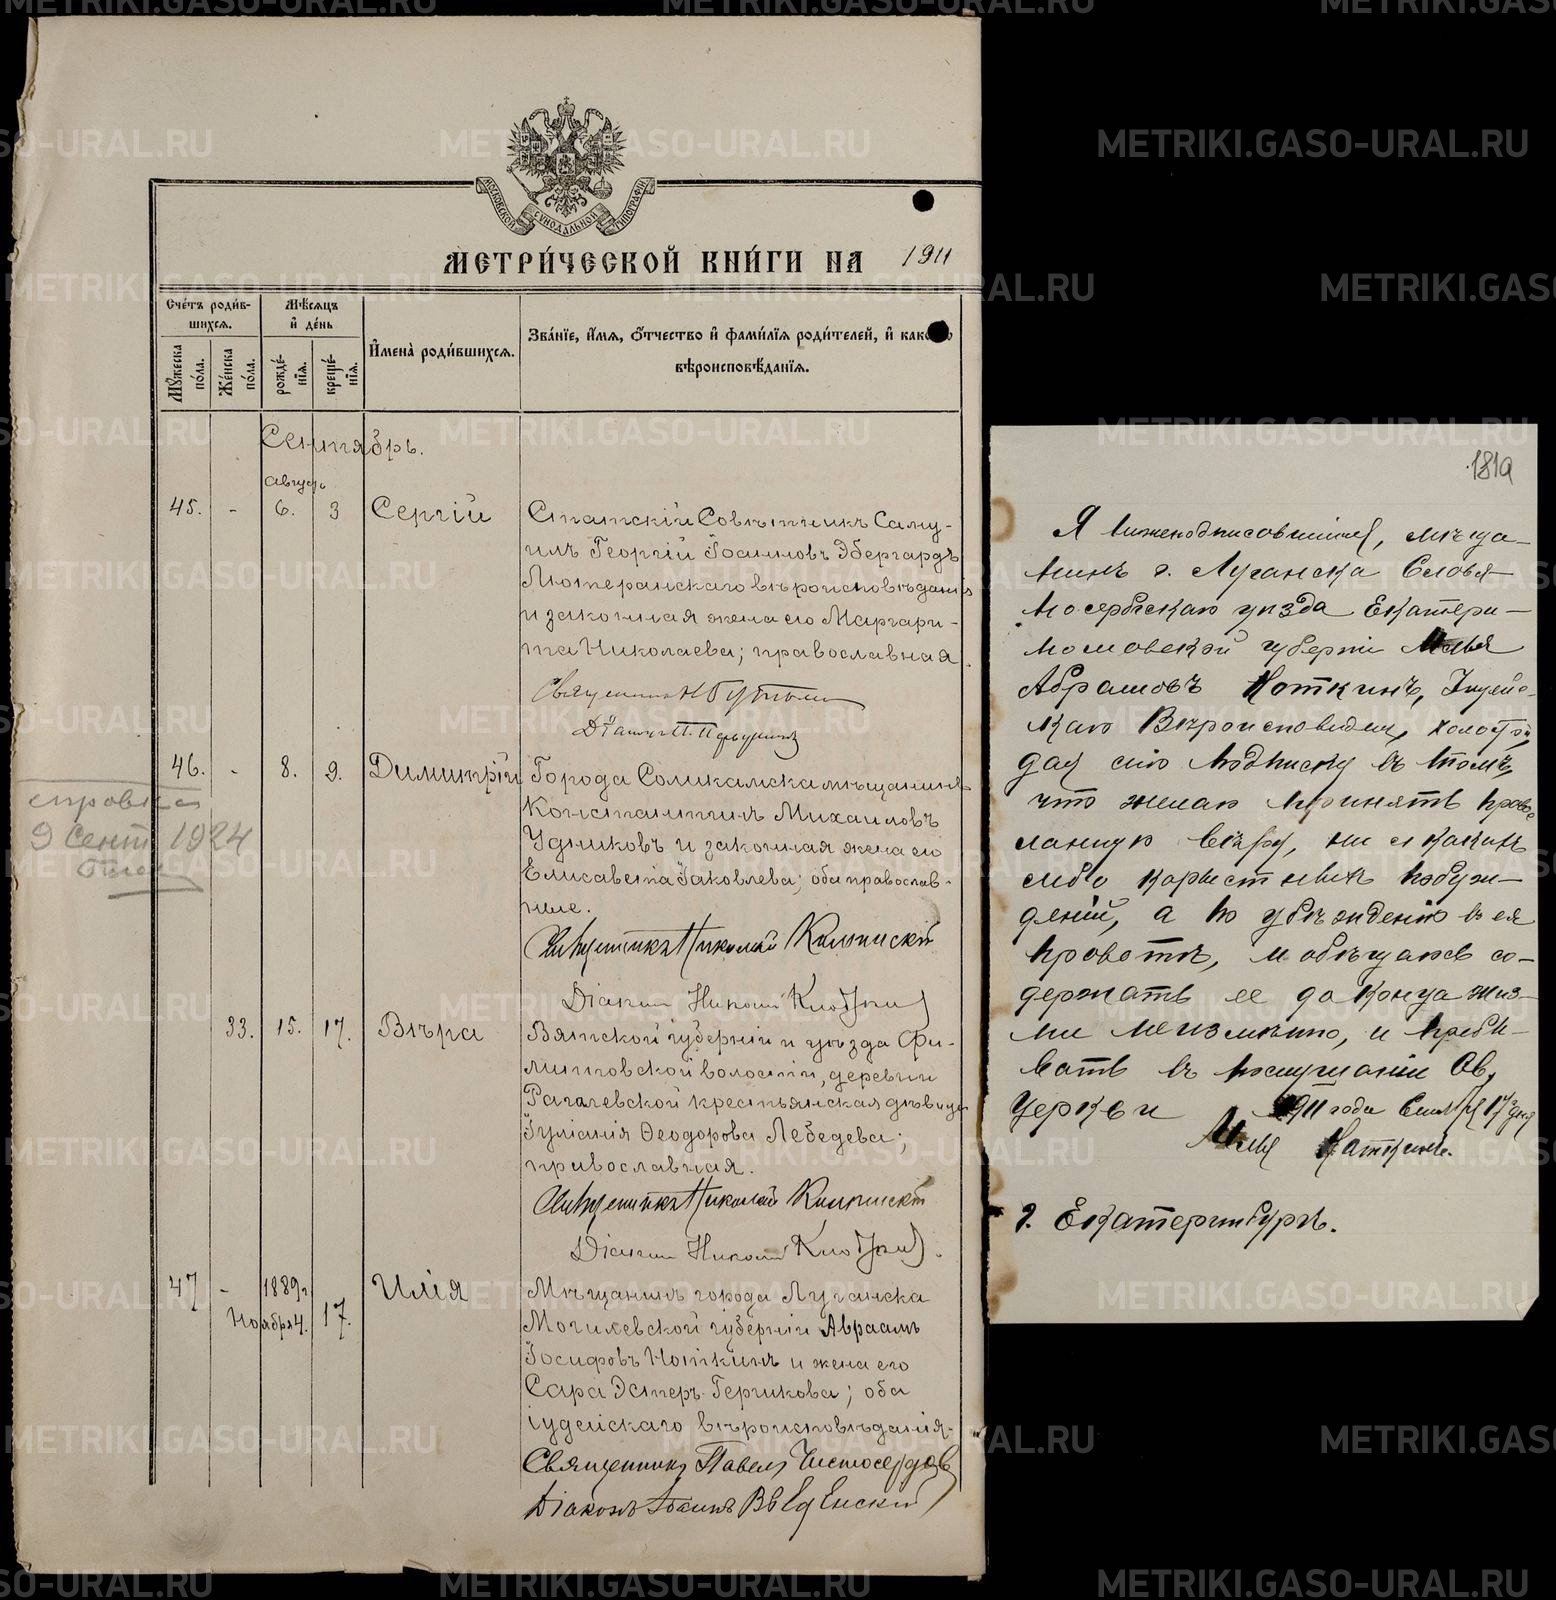 МОСКОВСКОЙ СѴНОДАЛЬНОЙ ТИПОГРАФІИ
МЕТРИ́ЧЕСКОЙ КНИ́ГИ НА 1911
Сче́тъ роди́в-
шихся.
Мѣ́сяцъ
и҆ де́нь
Мꙋ́жеска
по́ла.
Же́нска
по́ла.
рожде́-
нїя.
креще́-
нїя.
И҆мена̀ роди́вшихся.
Зва́нїе, и҆́мя, ѻ҆́тчество и҆ фами́лїя роди́телей, и҆ како
вѣроисповѣ́данїя.
Сентябрь.
августъ
45. - 6. 3 Сергій
Статскій Совѣтникъ Саму-
илъ Георгій Іоакимовъ Эбергардъ
Лютеранскаго вѣроисповѣданія
и законная жена его Маргари-
та Николаева; православная.
Священникъ
Діаконъ П.
46. - 8. 9. Димитрій
Города Соликамска мѣщанинъ
Константинъ Михаиловъ
Удниковъ и законная жена его
Елисавета Іаковлева; оба православ-
ные.
Священникъ Николай
Діаконъ Николай
справка
9 сент 1924
33. 15. 17. Вѣра
Вятской губерніи и уѣзда Фи-
липповской волости, деревни
Рагалевской крестьянская дѣвица
Іуліанія Ѳеодорова Лебедева;
православная.
Священникъ Николай
Діаконъ Николай
47 - 1889 г. Ноября 4. 17. Илія
Мѣщанинъ города Луганска
Могилевской губерніи Авраамъ
Іосифовъ Ноткинъ и жена его
Сара Эстеръ Гершкова; оба
іудейскаго вѣроисповѣданія.
Священникъ Павелъ Чистосердовъ
Діаконъ Іоаннъ Введенскій
181а
Я нижеподписавшійся, мѣща-
нинъ г. Луганска Славя
носербскаго уѣзда Екатери-
нославской губерніи Илья
Абрамовъ Ноткинъ, Іудейс-
каго Вѣроисповѣданія, холостой,
даю сію подписку въ томъ,
что желаю принять право
славную вѣру, ни с какихъ
либо корыстныхъ побуж-
деній, а по убѣжденію въ ея
правотѣ, и обѣщаюсь со-
держать ее до конца жиз-
ни неизмѣнно, и пребы-
вать въ послушаніи Св.
Церкви 1911 года Сентября 17 дня
Илья Ноткинъ.
г. Екатеринбургъ.
METRIKI.GASO-URAL.RU